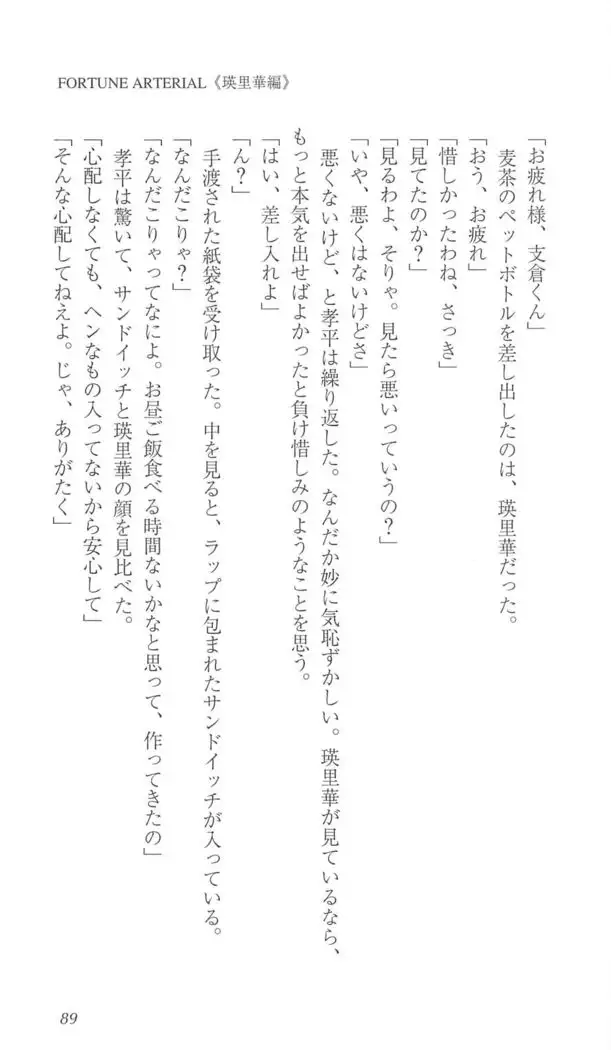 FORTUNE ARTERIAL《瑛里華編》
「お疲れ様、支倉くん」
麦茶のペットボトルを差し出したのは、瑛里華だった。
「おう、お疲れ」
「惜しかったわね、さっき」
「見てたのか？」
「見るわよ、そりゃ。見たら悪いっていうの？」
「いや、悪くはないけどさ」
悪くないけど、と孝平は繰り返した。なんだか妙に気恥ずかしい。瑛里華が見ているなら、
もっと本気を出せばよかったと負け惜しみのようなことを思う。
「はい、差し入れよ」
「ん？」
手渡された紙袋を受け取った。中を見ると、ラップに包まれたサンドイッチが入っている。
「なんだこりゃ？」
「なんだこりゃってなによ。お昼ご飯食べる時間ないかなと思って、作ってきたの」
孝平は驚いて、サンドイッチと瑛里華の顔を見比べた。
「心配しなくても、ヘンなもの入ってないから安心して」
「そんな心配してねえよ。じゃ、ありがたく」
89